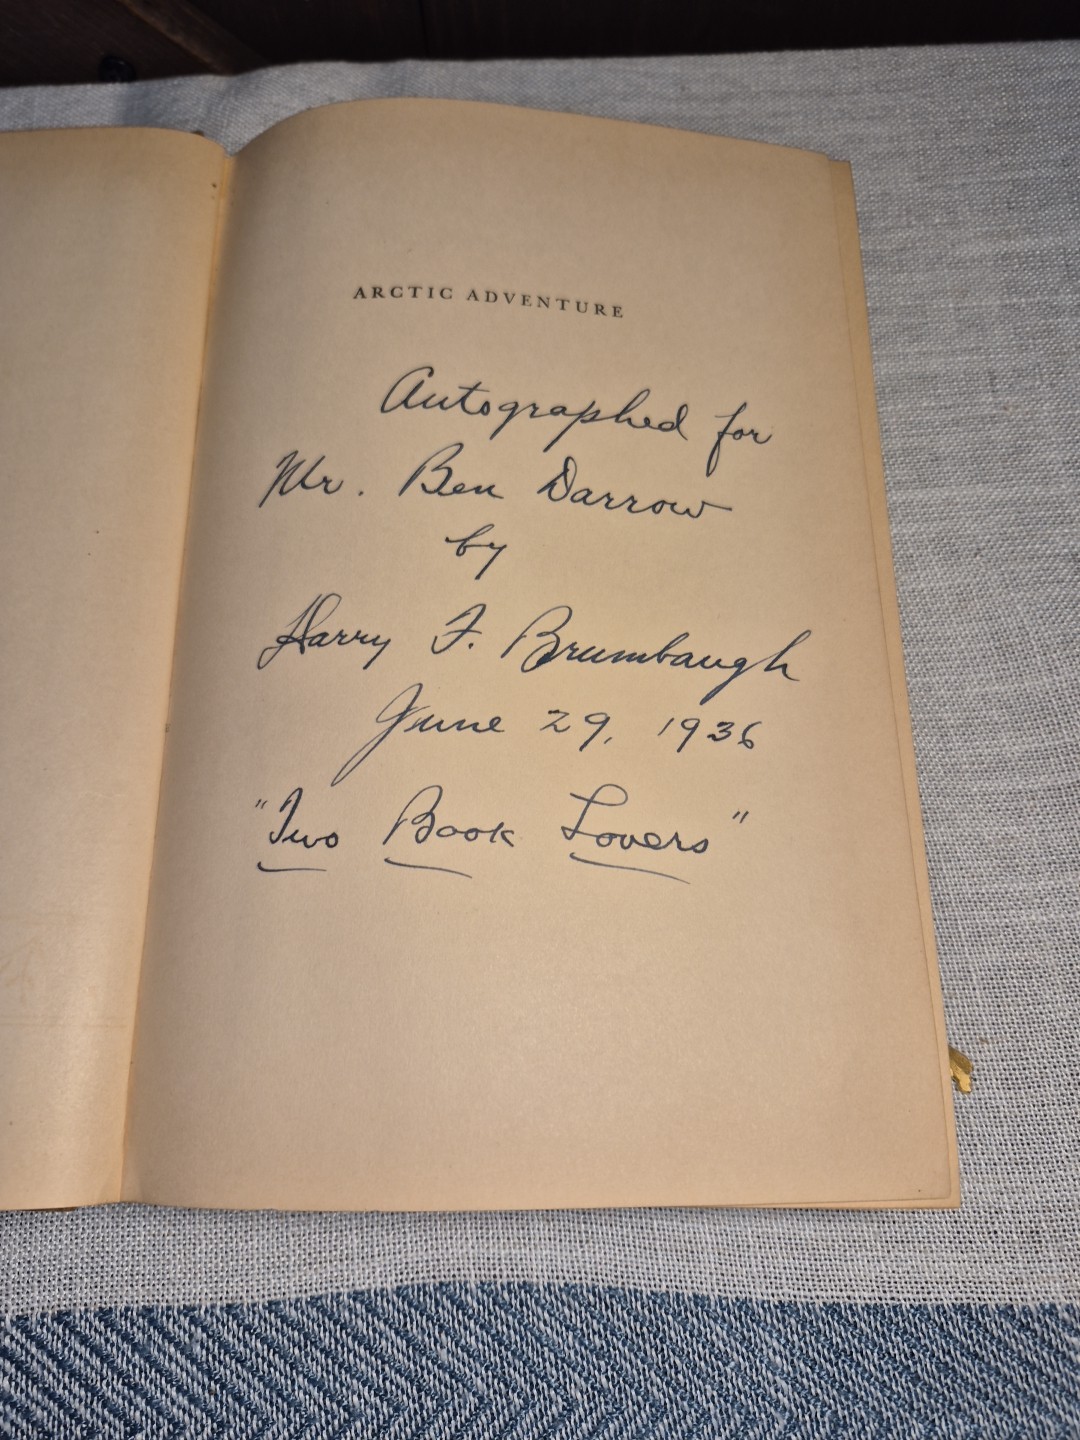 ARCTIC ADVENTURE
Autographed for
Mr. Ben Darrow
by
Harry F. Brumbaugh
June 29, 1936
"Two Book Lovers"